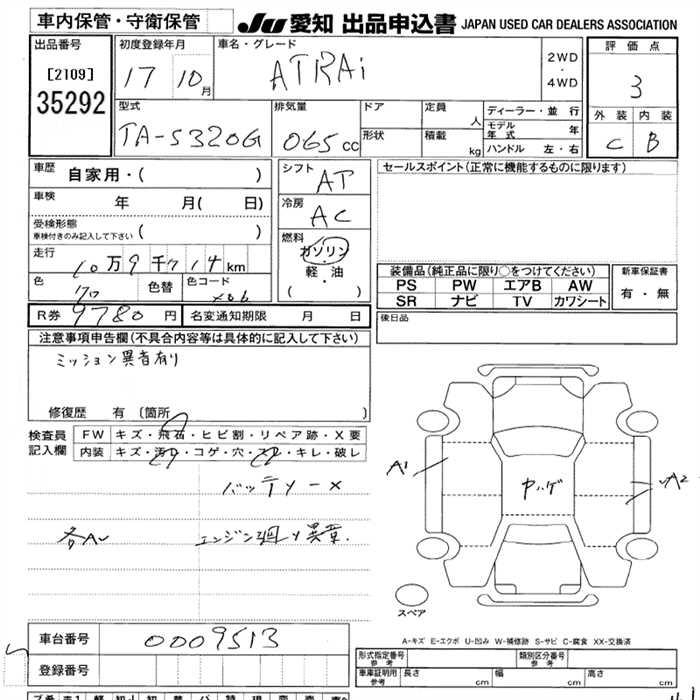 車内保管・守衛保管
JU 愛知 出品申込書 JAPAN USED CAR DEALERS ASSOCIATION
出品番号
[2109]
35292
初度登録年月
17 10月
車名・グレード
ATRAi
2WD
・
4WD
評価点
3
外装 内装
C B
型式
TA-S320G
排気量
065cc
ドア
形状
定員
人
積載
kg
ディーラー・並行
モデル年式 年
ハンドル 左・右
車歴 自家用・( )
車検 年 月( 日)
受検形態
車検付きのみ記入して下さい ( )
走行 10万9千714km
色
色替
色コード
X06
シフト
AT
冷房
AC
燃料
ガソリン
・
軽・油
( )
セールスポイント(正常に機能するものに限ります)
装備品(純正品に限り○をつけてください)
PS PW エアB AW
SR ナビ TV カワシート
新車保証書
有・無
後日品
R券 9780円
名変通知期限 月 日
注意事項申告欄(不具合内容等は具体的に記入して下さい)
ミッション異音有り
修復歴 有 [箇所 ]
検査員
記入欄
FW キズ・飛石・ヒビ割・リペア跡・X要
内装 キズ・汚れ・コゲ・穴・スレ・キレ・破レ
バッテリー×
各A
エンジン廻り異音.
A1
ヤハゲ
A2
スペア
A-キズ E-エクボ U-凹み W-補修跡 S-サビ C-腐食 XX-交換済
車台番号 0009513
登録番号
形式指定番号
参考
類別区分番号
参考
車庫証明用
参考
長さ cm 幅 cm 高さ cm